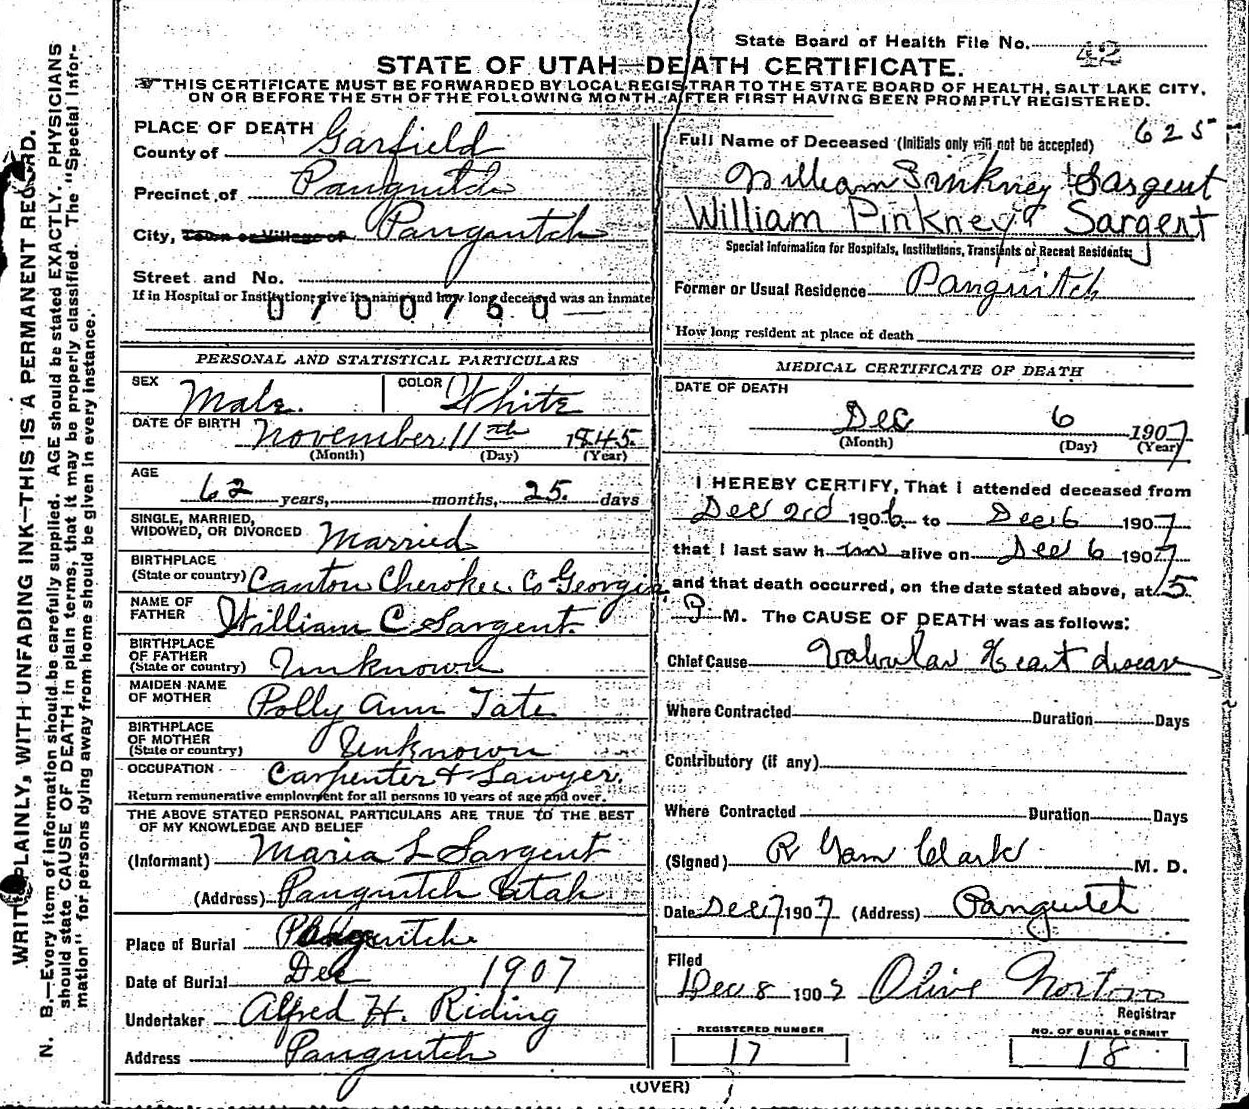 State Board of Health File No. 42
STATE OF UTAH—DEATH CERTIFICATE.
THIS CERTIFICATE MUST BE FORWARDED BY LOCAL REGISTRAR TO THE STATE BOARD OF HEALTH, SALT LAKE CITY,
ON OR BEFORE THE 5TH OF THE FOLLOWING MONTH, AFTER FIRST HAVING BEEN PROMPTLY REGISTERED.
WRITE PLAINLY, WITH UNFADING INK—THIS IS A PERMANENT RECORD.
N. B.—Every item of information should be carefully supplied. AGE should be stated EXACTLY. PHYSICIANS
should state CAUSE OF DEATH in plain terms, that it may be properly classified. The "Special Infor-
mation" for persons dying away from home should be given in every instance.
PLACE OF DEATH
County of Garfield
Precinct of Panguitch
City, Town or Village of Panguitch
Street and No.
If in Hospital or Institution, give its name and how long deceased was an Inmate
0700760
PERSONAL AND STATISTICAL PARTICULARS
SEX Male. COLOR White
DATE OF BIRTH November 11th 1845.
(Month) (Day) (Year)
AGE
62 years, months, 25. days
SINGLE, MARRIED,
WIDOWED, OR DIVORCED Married
BIRTHPLACE
(State or country) Canton Cherokee Co Georgia.
NAME OF
FATHER William C Sargent.
BIRTHPLACE
OF FATHER
(State or country) Unknown
MAIDEN NAME
OF MOTHER Polly Ann Tate
BIRTHPLACE
OF MOTHER
(State or country) Unknown
OCCUPATION Carpenter & Lawyer.
Return remunerative employment for all persons 10 years of age and over.
THE ABOVE STATED PERSONAL PARTICULARS ARE TRUE TO THE BEST
OF MY KNOWLEDGE AND BELIEF
(Informant) Maria L Sargent
(Address) Panguitch Utah
Place of Burial Panguitch
Date of Burial Dec 1907
Undertaker Alfred H. Riding
Address Panguitch
625
Full Name of Deceased (Initials only will not be accepted)
William Pinkney Sargent
William Pinkney Sargent
Special Information for Hospitals, Institutions, Transients or Recent Residents:
Former or Usual Residence Panguitch
How long resident at place of death
MEDICAL CERTIFICATE OF DEATH
DATE OF DEATH
Dec 6 1907
(Month) (Day) (Year)
I HEREBY CERTIFY, That I attended deceased from
Dec 2rd 1906 to Dec 6 1907
that I last saw him alive on Dec 6 1907
and that death occurred, on the date stated above, at 5
P M. The CAUSE OF DEATH was as follows:
Chief Cause Valvular Heart disease
Where Contracted Duration Days
Contributory (if any)
Where Contracted Duration Days
(Signed) R Clark M. D.
Date Dec 7 1907 (Address) Panguitch
Filed
Dec 8 1907 Olive Norton
Registrar
REGISTERED NUMBER
17
NO. OF BURIAL PERMIT
18
(OVER)